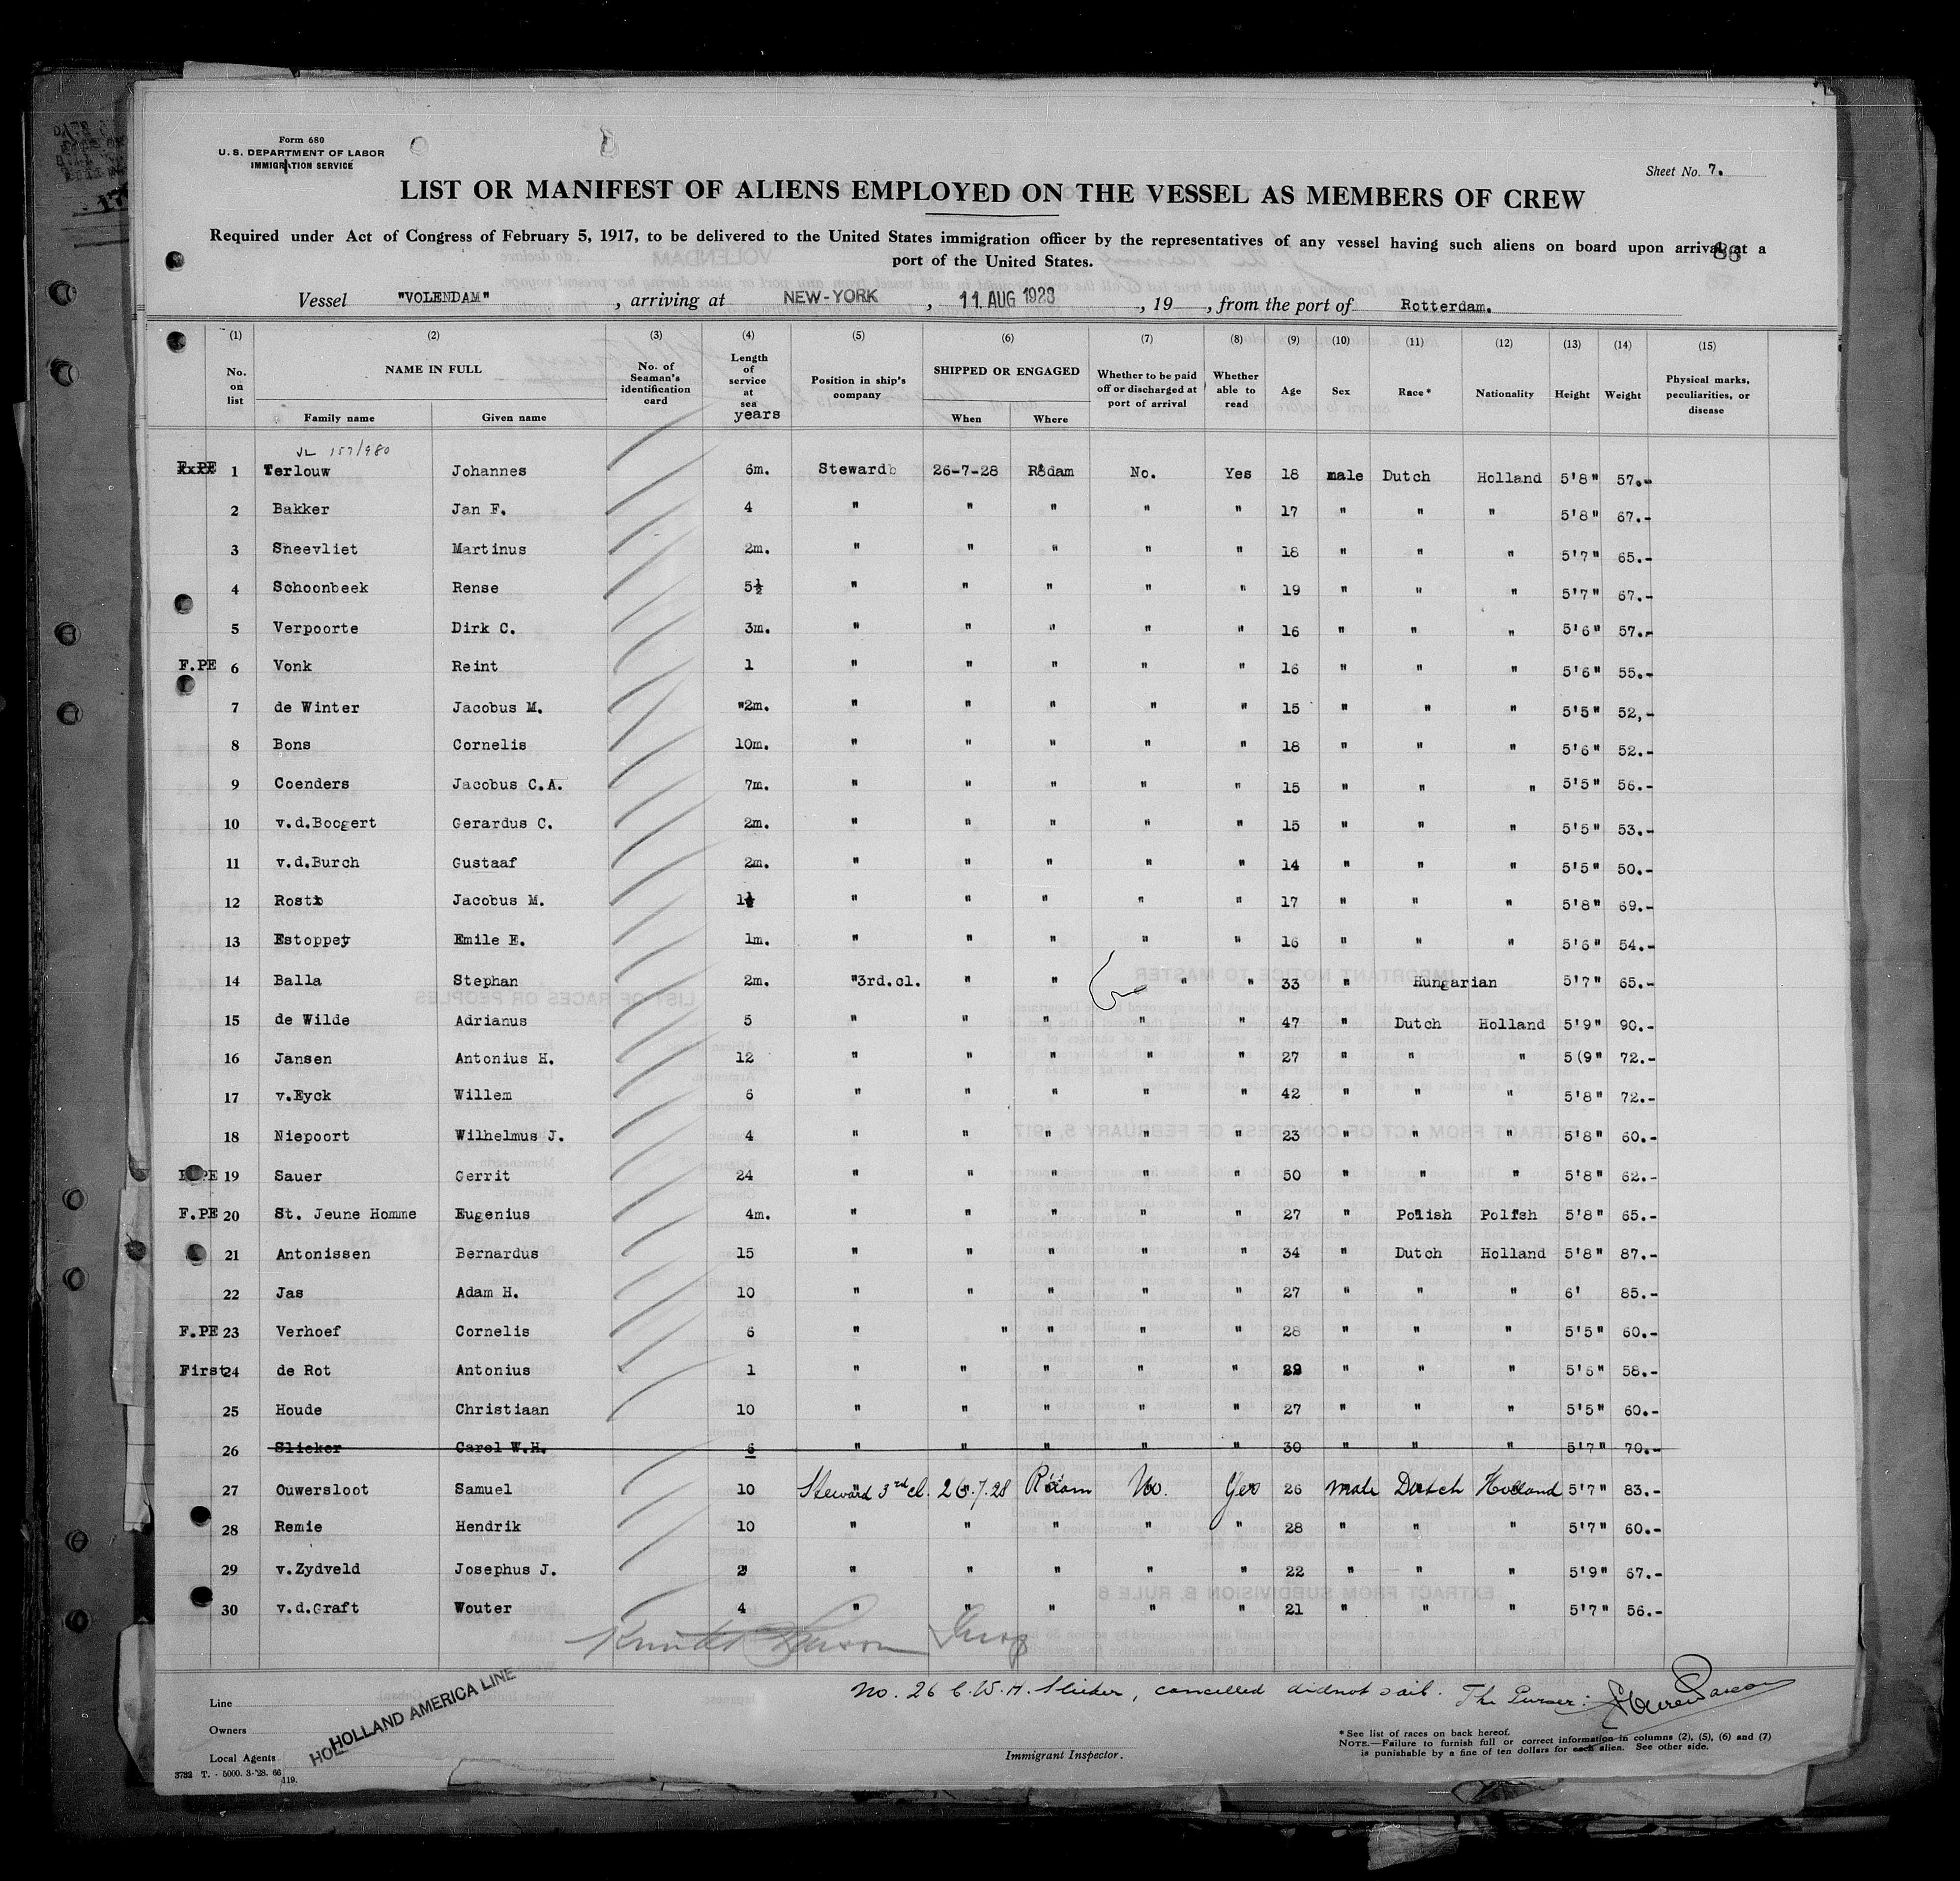 Form 680
U. S. DEPARTMENT OF LABOR
IMMIGRATION SERVICE
Sheet No. 7.
LIST OR MANIFEST OF ALIENS EMPLOYED ON THE VESSEL AS MEMBERS OF CREW
Required under Act of Congress of February 5, 1917, to be delivered to the United States immigration officer by the representatives of any vessel having such aliens on board upon arrival at a
port of the United States.
88
Vessel "VOLENDAM", arriving at NEW-YORK, 11 AUG 1928, 19, from the port of Rotterdam.
(1) (2) (3) (4) (5) (6) (7) (8) (9) (10) (11) (12) (13) (14) (15)
No. on list NAME IN FULL Family name Given name No. of Seaman's identification card Length of service at sea years Position in ship's company SHIPPED OR ENGAGED When Where Whether to be paid off or discharged at port of arrival Whether able to read Age Sex Race* Nationality Height Weight Physical marks, peculiarities, or disease
157/980
F.PE 1 Terlouw Johannes 6m. Steward 26-7-28 R'dam No. Yes 18 male Dutch Holland 5'8" 57.-
2 Bakker Jan F. 4 " " " " " 17 " " " 5'8" 67.-
3 Sneevliet Martinus 2m. " " " " " 18 " " " 5'7" 65.-
4 Schoonbeek Rense 5½ " " " " " 19 " " " 5'7" 67.-
5 Verpoorte Dirk C. 3m. " " " " " 16 " " " 5'6" 57.-
F.PE 6 Vonk Reint 1 " " " " " 16 " " " 5'6" 55.-
7 de Winter Jacobus M. "2m. " " " " " 15 " " " 5'5" 52,-
8 Bons Cornelis 10m. " " " " " 18 " " " 5'6" 52.-
9 Coenders Jacobus C.A. 7m. " " " " " 15 " " " 5'5" 56.-
10 v.d.Boogert Gerardus C. 2m. " " " " " 15 " " " 5'5" 53.-
11 v.d.Burch Gustaaf 2m. " " " " " 14 " " " 5'5" 50.-
12 Jacobus M. 1½ " " " " " 17 " " " 5'8" 69.-
13 Estoppey Emile E. 1m. " " " " " 16 " " " 5'6" 54.-
14 Balla Stephan 2m. "3rd.cl. " " " " 33 " Hungarian 5'7" 65.-
15 de Wilde Adrianus 5 " " " " " 47 " Dutch Holland 5'9" 90.-
16 Jansen Antonius H. 12 " " " " " 27 " " " 5(9" 72.-
17 v.Eyck Willem 6 " " " " " 42 " " " 5'8" 72.-
18 Niepoort Wilhelmus J. 4 " " " " " 23 " " " 5'8" 60.-
PE 19 Sauer Gerrit 24 " " " " " 50 " " " 5'8" 62.-
F.PE 20 St. Jeune Homme Eugenius 4m. " " " " " 27 " Polish Polish 5'8" 65.-
21 Antonissen Bernardus 15 " " " " " 34 " Dutch Holland 5'8" 87.-
22 Jas Adam H. 10 " " " " " 27 " " " 6' 85.-
F.PE 23 Verhoef Cornelis 6 " " " " " 28 " " " 5'5" 60.-
First 24 de Rot Antonius 1 " " " " " 29 " " " 5'6" 58.-
25 Houde Christiaan 10 " " " " " 27 " " " 5'5" 60.-
26 Slicker Carel W.H. 6 " " " " " 30 " " " 5'7" 70.-
27 Ouwersloot Samuel 10 Steward 3rd cl. 26.7.28 R'dam No. Yes 26 male Dutch Holland 5'7" 83.-
28 Remie Hendrik 10 " " " " " 28 " " " 5'7" 60.-
29 v.Zydveld Josephus J. 2 " " " " " 22 " " " 5'9" 67.-
30 v.d.Graft Wouter 4 " " " " " 21 " " " 5'7" 56.-
No. 26 C.W.H. Slicker, cancelled didnot sail. The Purser:
Line
Owners
Local Agents
HOLLAND AMERICA LINE
Immigrant Inspector.
*See list of races on back hereof.
NOTE.—Failure to furnish full or correct information in columns (2), (5), (6) and (7)
is punishable by a fine of ten dollars for each alien. See other side.
3732 T. - 5000. 3-'28. 66
119.